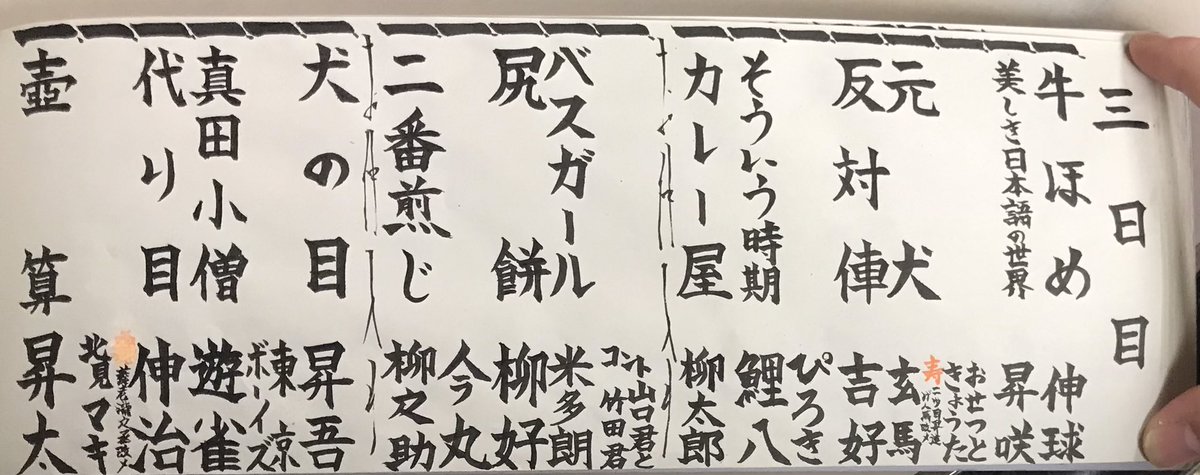 三日目
牛ほめ 伸球
美しき日本語の世界 昇咲
おせつと
きょうた
元犬 玄馬
寿
反対俥 吉好
ぴろき
そういう時期 鯉八
カレー屋 柳太郎
コント山口君と
竹田君
バスガール 米多朗
尻餅 柳好
今丸
二番煎じ 柳之助
犬の目 昇吾
東京
ボーイズ
真田小僧 遊雀
代り目 伸治
北見マキ
壺算 昇太